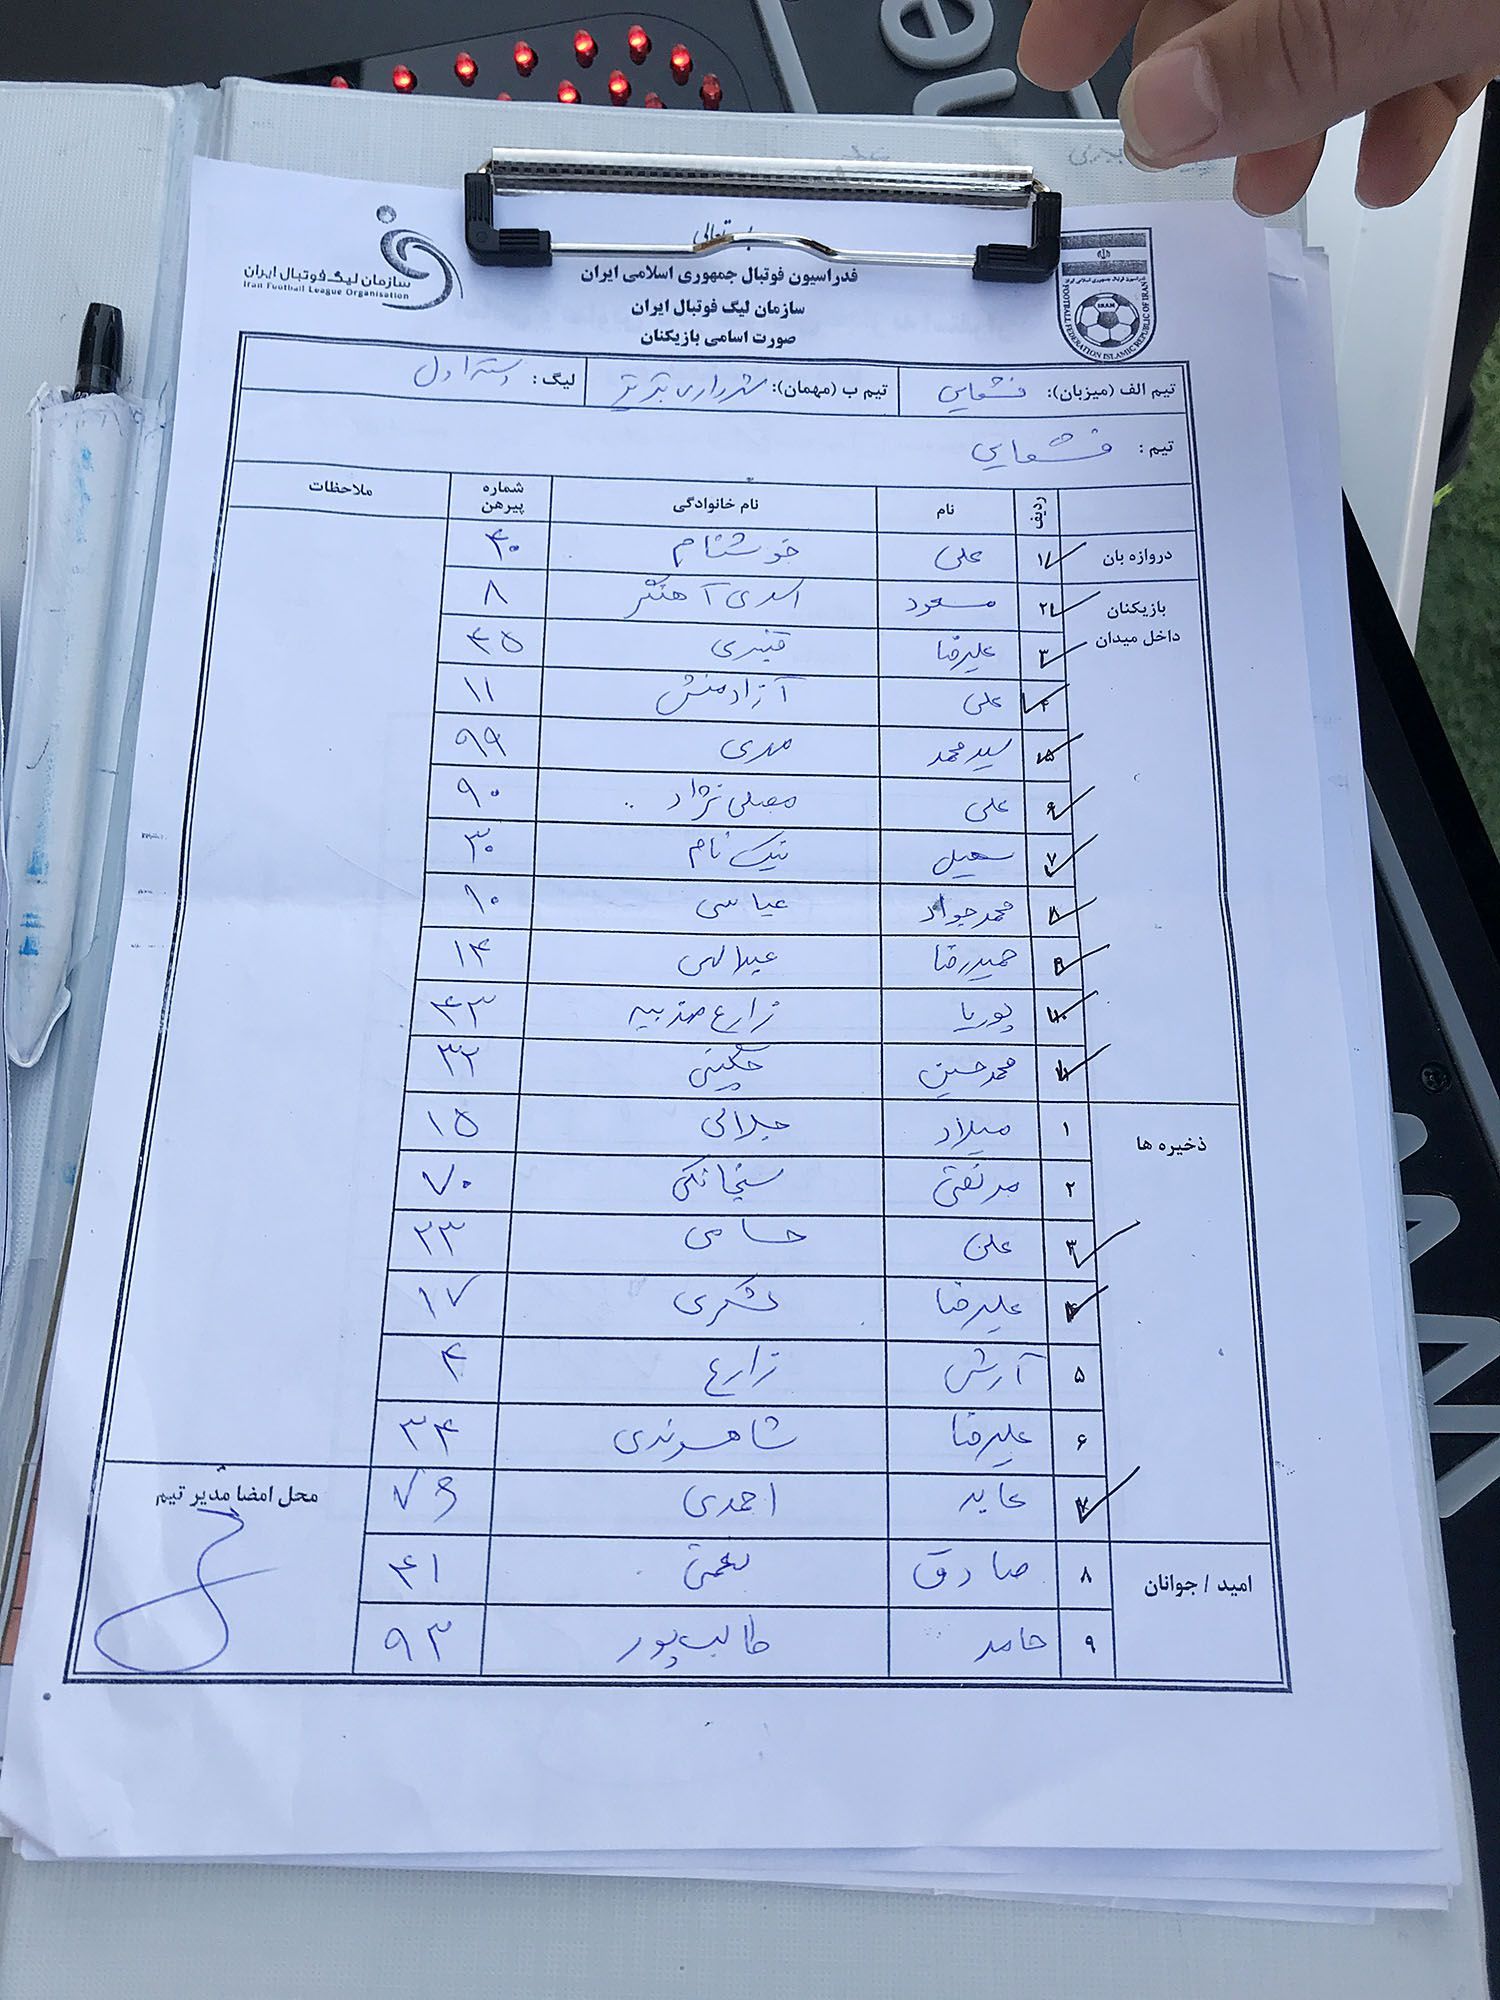 فدراسیون فوتبال جمهوری اسلامی ایران
سازمان لیگ فوتبال ایران
صورت اسامی بازیکنان
سازمان لیگ فوتبال ایران
Iran Football League Organisation
FOOTBALL FEDERATION ISLAMIC REPUBLIC OF IRAN
IRAN
تیم الف (میزبان): قشقایی تیم ب (مهمان): شهرداری تبریز لیگ: دسته اول
تیم: قشقایی
ردیف نام نام خانوادگی شماره پیرهن ملاحظات
دروازه بان ۱ علی خوشنام ۴۰
بازیکنان داخل میدان ۲ مسعود اسدی آهنگر ۸
۳ علیرضا قنبری ۴۵
۴ علی آزادمنش ۱۱
۵ سیدمحمد مهدی ۹۹
۶ علی مصلی نژاد ۹۰
۷ سهیل نیک نام ۳۰
۸ محمدجواد عباسی ۱۰
۹ حمیدرضا عبدالهی ۱۴
۱۰ پوریا زارع مهذبیه ۴۳
۱۱ محمدحسین چگینی ۳۲
ذخیره ها ۱ میلاد جلالی ۱۵
۲ مرتضی سنچانکی ۷۰
۳ علی حسامی ۲۳
۴ علیرضا لشکری ۱۷
۵ آرش زارع ۴
۶ علیرضا شاهوندی ۳۴
۷ عابد احمدی ۷۶
امید / جوانان ۸ صادق نعمتی ۴۱
۹ حامد طالب‌پور ۹۳
محل امضا مدیر تیم